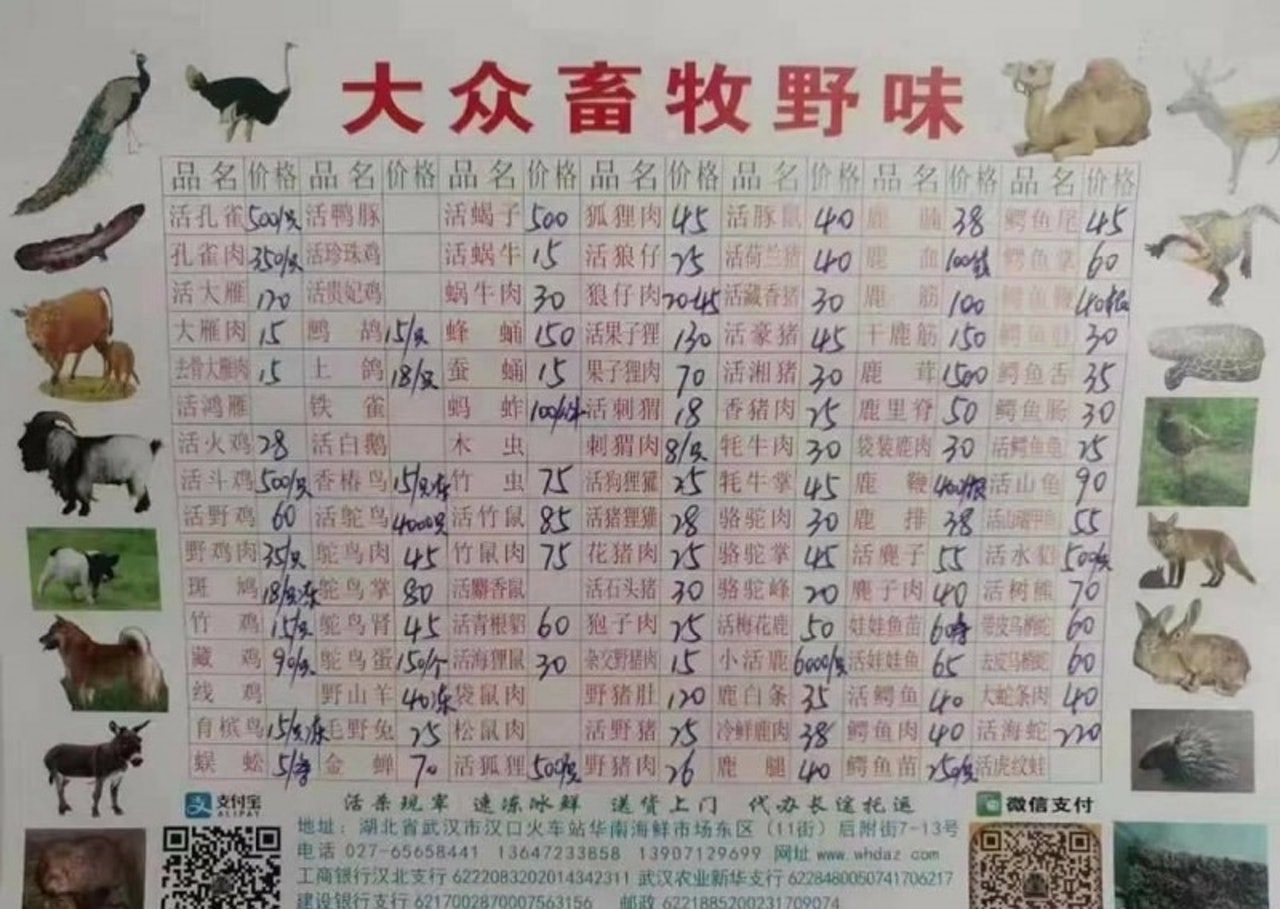 大众畜牧野味
品名 价格 品名 价格 品名 价格 品名 价格 品名 价格 品名 价格 品名 价格
活孔雀 500/只 活鸭豚 活蝎子 500 狐狸肉 45 活豚鼠 40 鹿 38 鳄鱼尾 45
孔雀肉 350/只 活珍珠鸡 活蜗牛 15 活狼仔 25 活荷兰猪 40 鹿血 鳄鱼掌 60
活大雁 120 活贵妃鸡 蜗牛肉 30 狼仔肉 20-45 活藏香猪 30 鹿筋 100 鳄鱼鞭
大雁肉 15 鹧鸪 15/只 蜂蛹 150 活果子狸 130 活豪猪 45 干鹿筋 150 鳄鱼肚 30
去骨大雁肉 15 上鸽 18/只 蚕蛹 15 果子狸肉 70 活湘猪 30 鹿茸 1500 鳄鱼舌 35
活鸿雁 铁雀 蚂蚱 活刺猬 18 香猪肉 25 鹿里脊 50 鳄鱼肠 30
活火鸡 28 活白鹅 木虫 刺猬肉 8/只 牦牛肉 30 袋装鹿肉 30 活鳄鱼龟 25
活斗鸡 500/只 香椿鸟 15/只冻 竹虫 75 活狗狸獾 25 牦牛掌 45 鹿鞭 400/根 活山龟 90
活野鸡 60 活鸵鸟 4000只 活竹鼠 85 活猪狸獾 28 骆驼肉 30 鹿排 38 55
野鸡肉 35/只 鸵鸟肉 45 竹鼠肉 75 花猪肉 25 骆驼掌 45 活麂子 55 活水貂 500/只
斑鸠 18/只冻 鸵鸟掌 80 活麝香鼠 活石头猪 30 骆驼峰 20 麂子肉 40 活树熊 70
竹鸡 15/只 鸵鸟肾 45 活青根貂 60 狍子肉 25 活梅花鹿 50 娃娃鱼苗 带皮乌梢蛇 60
藏鸡 90/只 鸵鸟蛋 150/个 活海狸鼠 30 杂交野猪肉 15 小活鹿 6000/只 活娃娃鱼 65 去皮乌梢蛇 60
线鸡 野山羊 40冻 袋鼠肉 野猪肚 120 鹿白条 35 活鳄鱼 40 大蛇条肉 40
育槟鸟 15/只冻 毛野兔 25 松鼠肉 活野猪 25 冷鲜鹿肉 38 鳄鱼肉 40 活海蛇 220
蜈蚣 金蝉 70 活狐狸 500/只 野猪肉 26 鹿腿 40 鳄鱼苗 250/只 活虎纹蛙
支付宝 ALIPAY 活杀现宰 速冻冰鲜 送货上门 代办长途托运 微信支付
地址：湖北省武汉市汉口火车站华南海鲜市场东区（11街）后附街7-13号
电话 027-65658441 13647233858 13907129699 网址 www.whdaz.com
工商银行汉北支行 6222083202014342311 武汉农业新华支行 6228480050741706217
建设银行支行 6217002870007563156 邮政 6221885200231709074